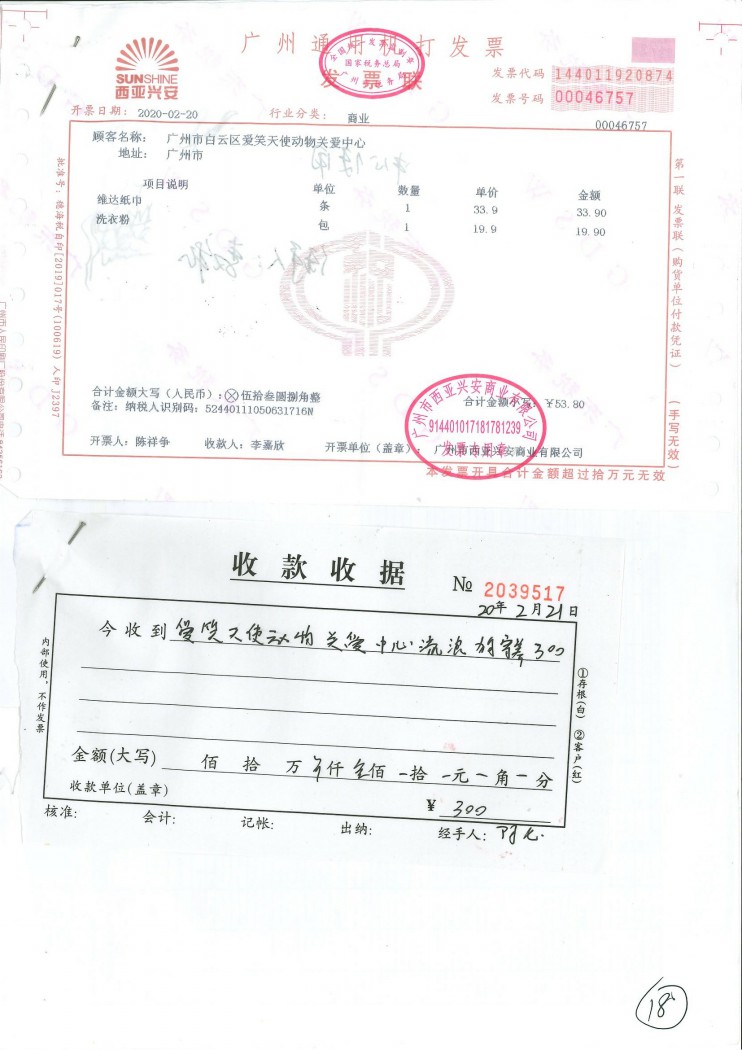 广州通用机打发票
发票联
SUNSHINE
西亚兴安
发票代码 144011920874
发票号码 00046757
开票日期： 2020-02-20 行业分类： 商业
00046757
顾客名称： 广州市白云区爱笑天使动物关爱中心
地址： 广州市
项目说明 单位 数量 单价 金额
维达纸巾 条 1 33.9 33.90
洗衣粉 包 1 19.9 19.90
合计金额大写（人民币）：ⓧ伍拾叁圆捌角整 合计金额小写：¥53.80
备注：纳税人识别码：52440111050631716N
开票人：陈祥争 收款人：李嘉欣 开票单位（盖章）： 广州市西亚兴安商业有限公司
广州市西亚兴安商业有限公司
914401017181781239
发票专用章
本发票开具合计金额超过拾万元无效
第一联 发票联（购货单位付款凭证）
（手写无效）
批准号：穗海税自印[2019]017号(100619)
收款收据 № 2039517
20年 2月21日
今收到 爱笑天使动物关爱中心流浪 300
金额(大写) 佰 拾 万 仟 佰 拾 元 角 分
收款单位(盖章) ¥ 300
核准： 会计： 记帐： 出纳： 经手人：
内部使用，不作发票
①存根(白) ②客户(红)
18